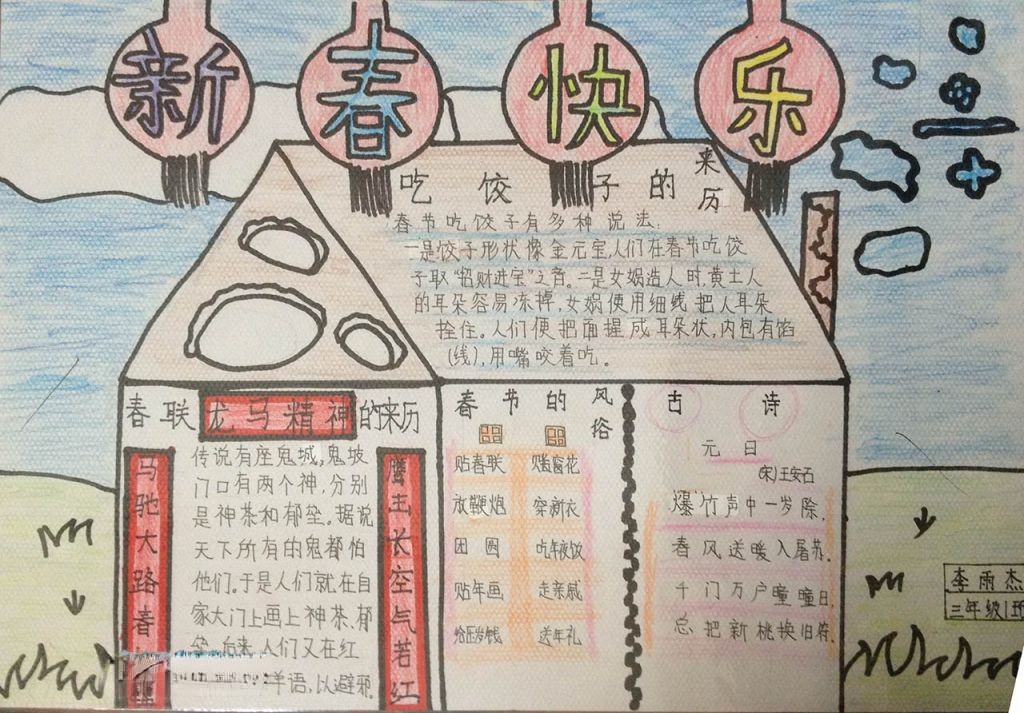 新春快乐
吃饺子的来历
春节吃饺子有多种说法:
一是饺子形状像金元宝,人们在春节吃饺
子取“招财进宝”之音。二是女娲造人时,黄土人
的耳朵容易冻掉,女娲便用细线把人耳朵
拴住。人们便把面握成耳朵状,内包有馅
(线),用嘴咬着吃。
春联龙马精神的来历
马驰大路春
传说有座鬼城,鬼坡
门口有两个神,分别
是神荼和郁垒。据说
天下所有的鬼都怕
他们。于是人们就在自
家大门上画上神荼、郁
垒,后来人们又在红
祥语,以避邪.
腾去长空气若红
春节的风俗
贴春联 贴窗花
放鞭炮 穿新衣
团圆 吃年夜饭
贴年画 走亲戚
给压岁钱 送年礼
古诗
元日
宋)王安石
爆竹声中一岁除,
春风送暖入屠苏.
千门万户曈曈日,
总把新桃换旧符.
李雨杰
三年级1班